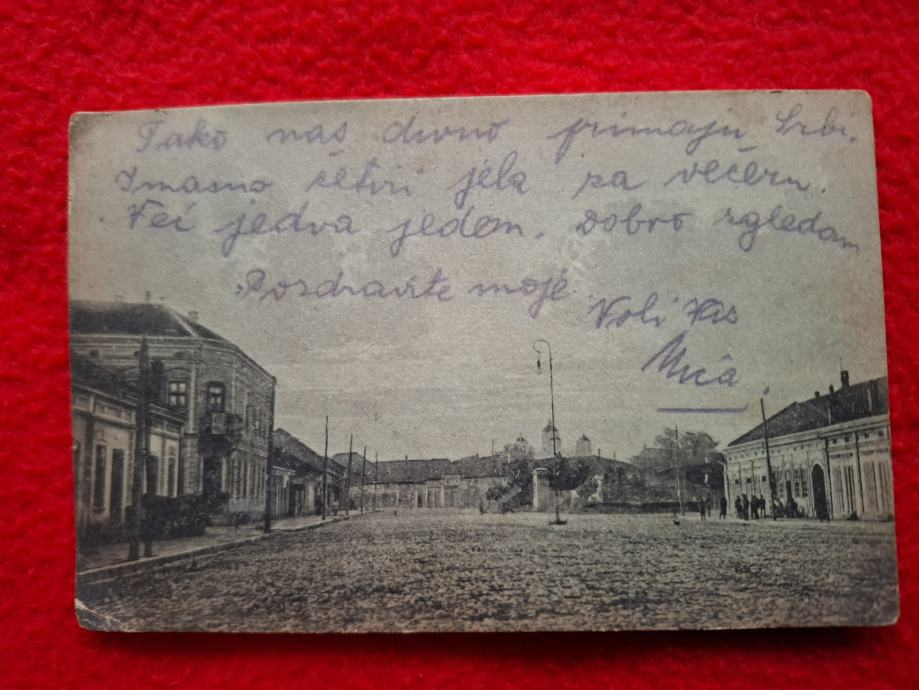 Tako nas divno primaju Srbi.
Imasmo četiri jela za večeru.
Već jedva jedem. Dobro izgledam
Pozdravite moje
Voli Vas
Mića